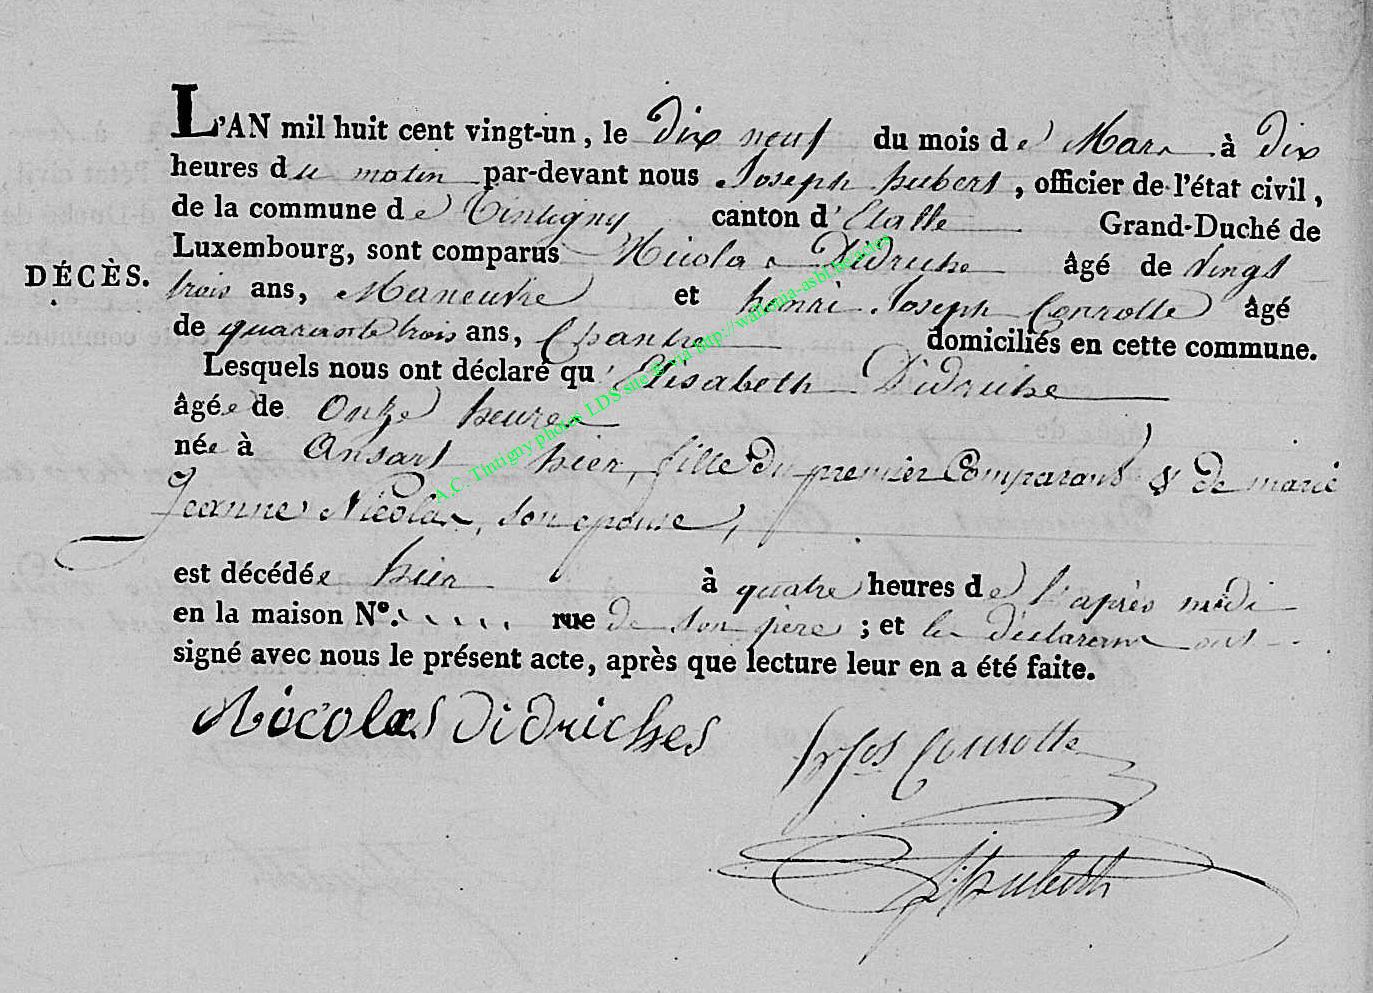 L'AN mil huit cent vingt-un, le Dix neuf du mois de Mars à Dix
heures du matin par-devant nous Joseph hubert, officier de l'état civil,
de la commune de Tintigny canton d'Etalle Grand-Duché de
Luxembourg, sont comparus Nicolas Didriche âgé de Vingt
DÉCÈS.
trois ans, Maneuvre et henri Joseph Conrotte âgé
de quarante trois ans, Chantre domiciliés en cette commune.
Lesquels nous ont déclaré qu'Elisabeth Didriche
âgée de Onze heures
née à Ansart hier, fille du premier Comparant & de marie
Jeanne Nicolas, son epouse,
est décédée hier à quatre heures de l'après midi
en la maison N°. rue de son père ; et les déclarans ont
signé avec nous le présent acte, après que lecture leur en a été faite.
Nicolas Didriches
Conrotte
Hubert
A.C. Tintigny photos LDS site B via http://wallonia-asbl.be/actes